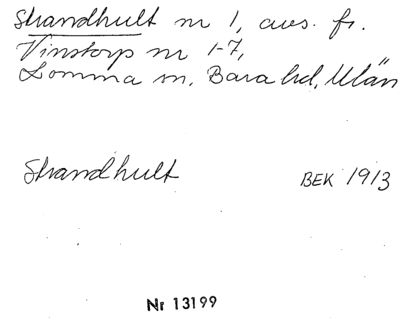 Strandhult nr 1, avs. fr.
Vinstorp nr 1-7,
Lomma sn, Bara hd, Mlän
Strandhult BEK 1913
Nr 13199